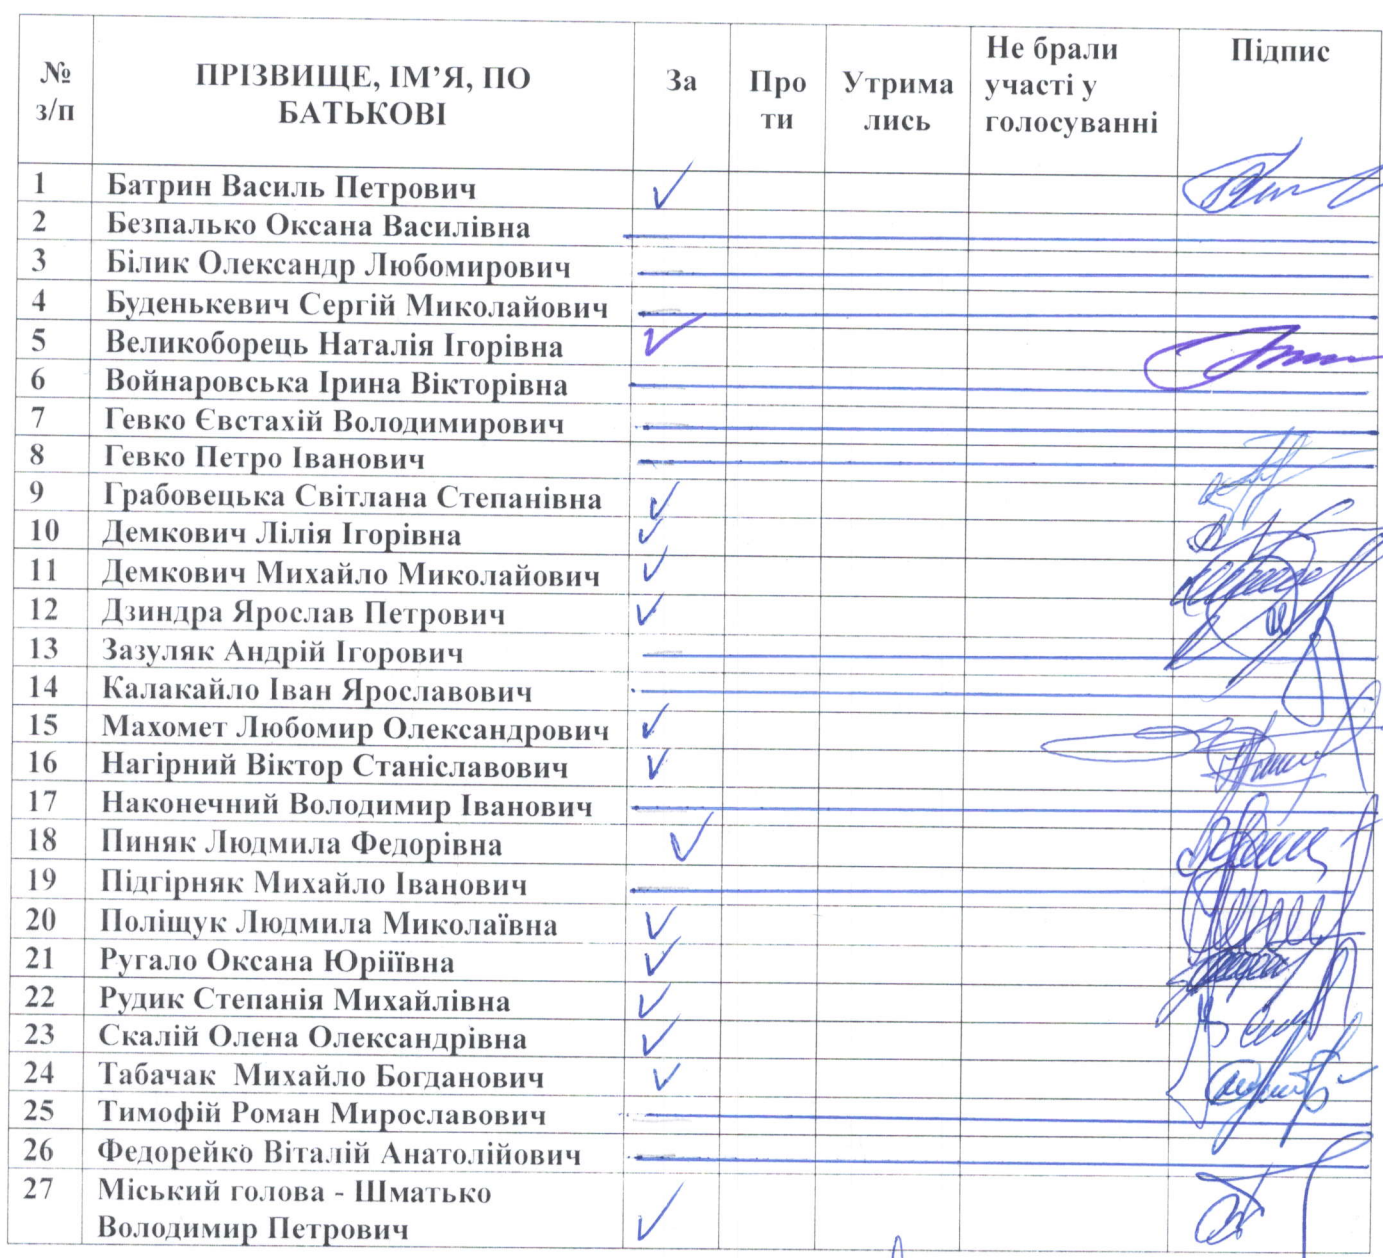 № з/п ПРІЗВИЩЕ, ІМ’Я, ПО БАТЬКОВІ За Про ти Утрима лись Не брали участі у голосуванні Підпис
1 Батрин Василь Петрович ✓
2 Безпалько Оксана Василівна
3 Білик Олександр Любомирович
4 Буденькевич Сергій Миколайович
5 Великоборець Наталія Ігорівна ✓
6 Войнаровська Ірина Вікторівна
7 Гевко Євстахій Володимирович
8 Гевко Петро Іванович
9 Грабовецька Світлана Степанівна ✓
10 Демкович Лілія Ігорівна ✓
11 Демкович Михайло Миколайович ✓
12 Дзиндра Ярослав Петрович ✓
13 Зазуляк Андрій Ігорович
14 Калакайло Іван Ярославович
15 Махомет Любомир Олександрович ✓
16 Нагірний Віктор Станіславович ✓
17 Наконечний Володимир Іванович
18 Пиняк Людмила Федорівна ✓
19 Підгірняк Михайло Іванович
20 Поліщук Людмила Миколаївна ✓
21 Ругало Оксана Юрііївна ✓
22 Рудик Степанія Михайлівна ✓
23 Скалій Олена Олександрівна ✓
24 Табачак Михайло Богданович ✓
25 Тимофій Роман Мирославович
26 Федорейко Віталій Анатолійович
27 Міський голова - Шматько
Володимир Петрович ✓